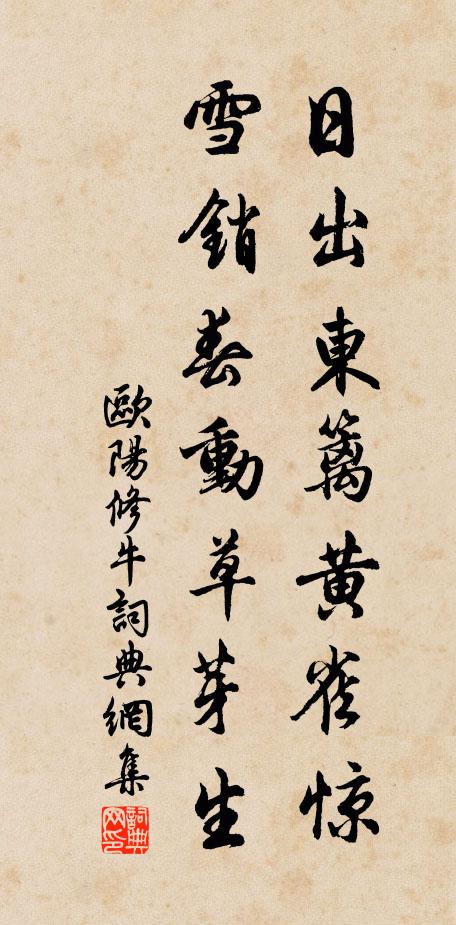 日出東籬黄雀惊
雪銷春動草芽生
歐陽修牛詞典網集
詞典
网印